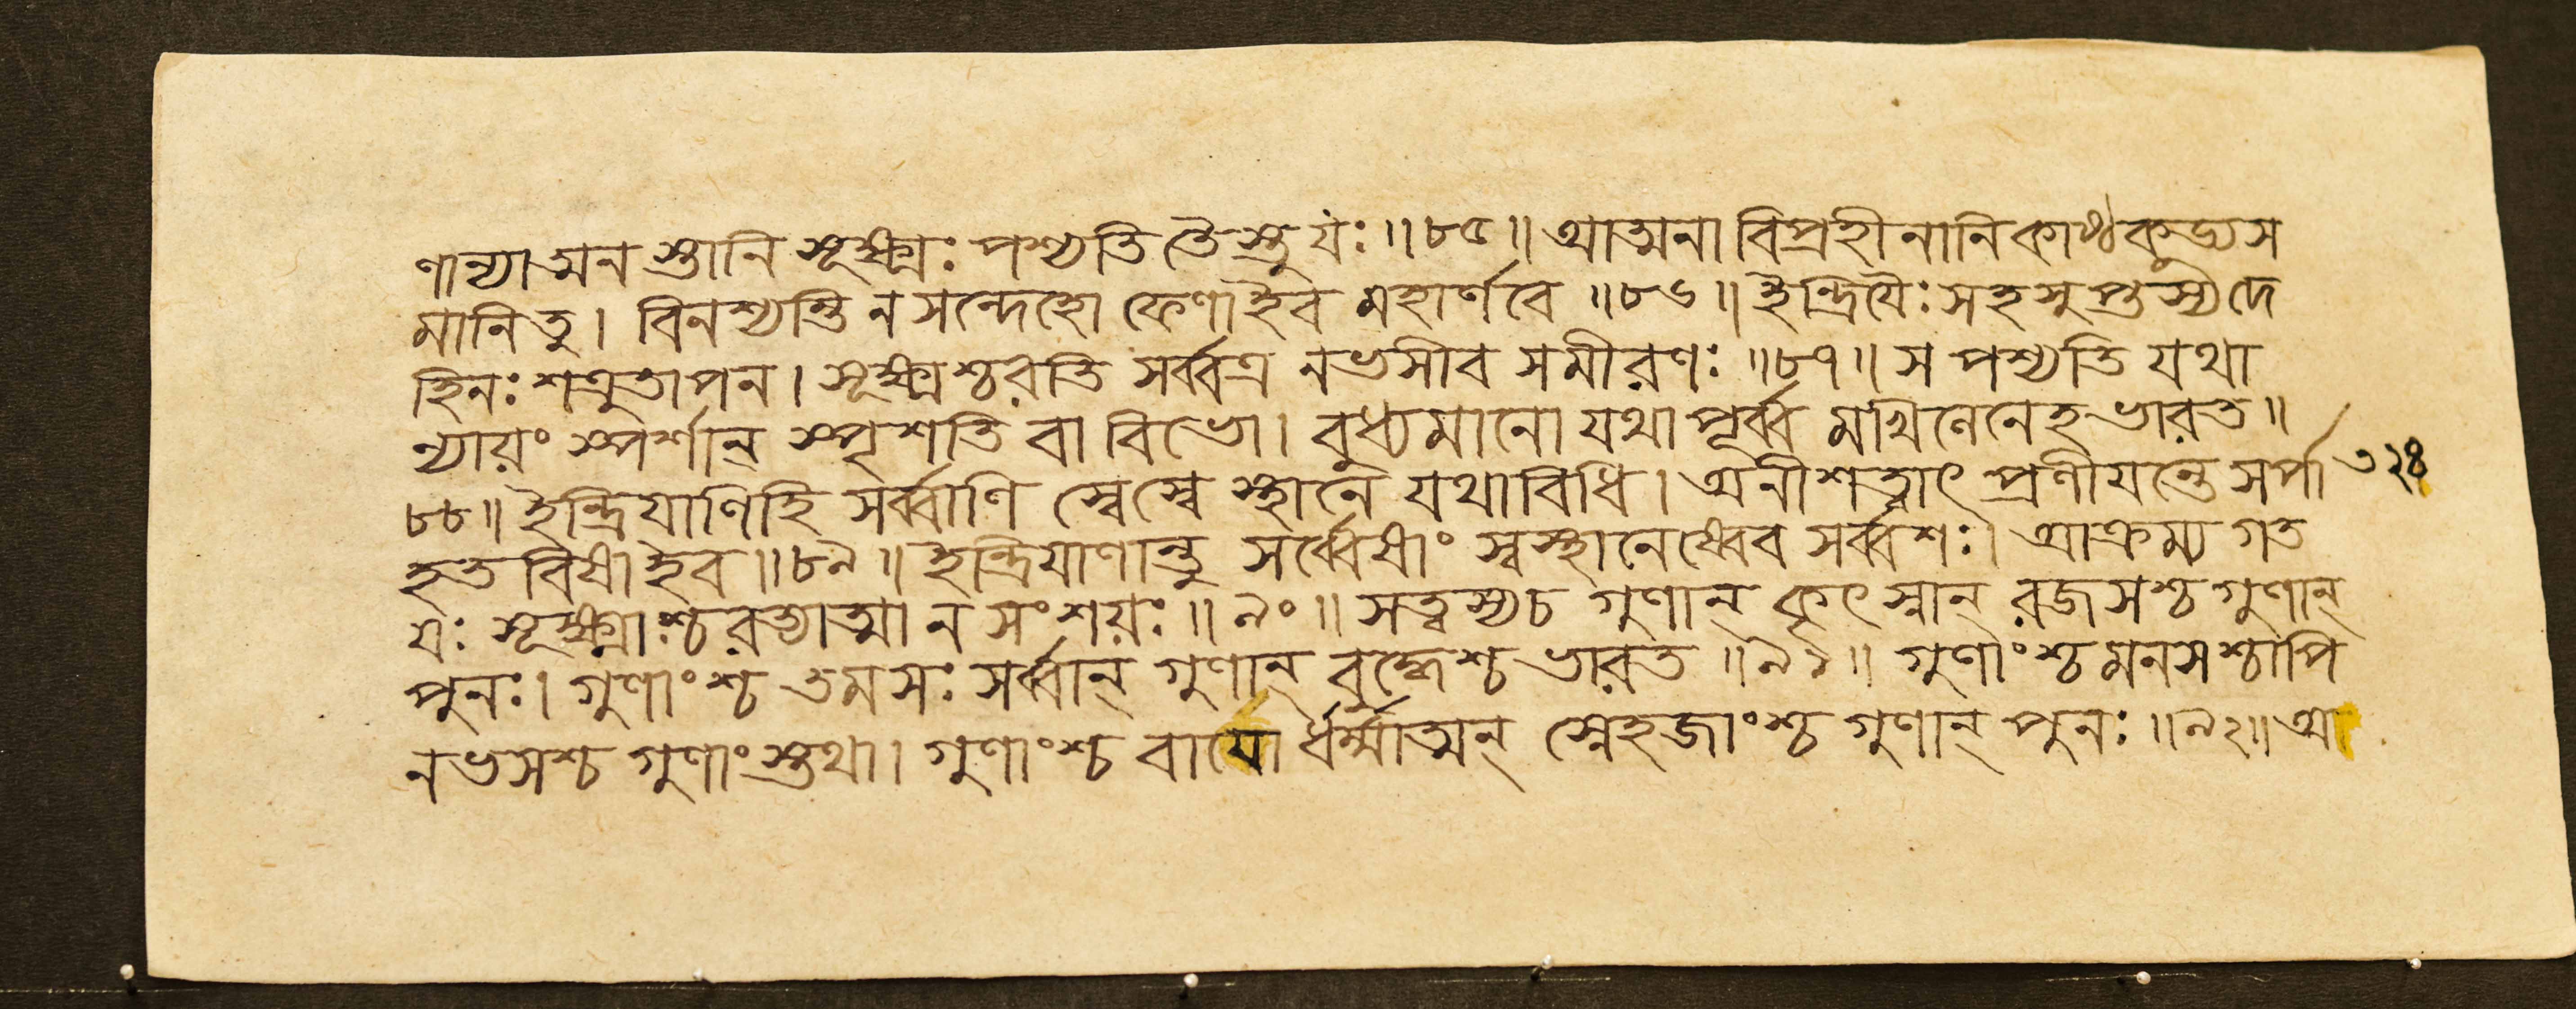 ণান্যাত্মনস্তানি সূক্ষ্মঃ পশ্যতি তৈস্তু যঃ ॥৮৫॥ আত্মনা বিপ্রহীনানি কাষ্ঠকুড্যস
মানি তু। বিনশ্যন্তি ন সন্দেহো ফেণাইব মহার্ণবে ॥৮৬॥ ইন্দ্রিযৈঃ সহ সুপ্তস্য দে
হিনঃ শত্রুতাপন। সূক্ষ্মশ্চরতি সর্ব্বত্র নভসীব সমীরণঃ ॥৮৭॥ স পশ্যতি যথা
ন্যায়ং স্পর্শান্ স্পৃশতি বা বিভো। বুধ্যমানো যথা পূর্ব্ব মখিলেনেহ ভারত॥
৮৮॥ ইন্দ্রিযাণিহি সর্ব্বাণি স্বেস্বে স্থানে যথাবিধি। অনীশত্বাৎ প্রলীযন্তে সর্পা
৩২৪
হত বিষাইব ॥৮৯॥ ইন্দ্রিযাণান্তু সর্ব্বেষাং স্বস্থানেষ্বেব সর্ব্বশঃ। আক্রম্য গত
যঃ সূক্ষ্মাংশ্চরত্যাত্মা ন সংশয়ঃ ॥৯০॥ সত্ত্বস্য চ গুণান্ কৃৎস্নান্ রজসশ্চ গুণান্
পুনঃ। গুণাংশ্চ তমসঃ সর্ব্বান্ গুণান্ বুদ্ধেশ্চ ভারত ॥৯১॥ গুণাংশ্চ মনসশ্চাপি
নভসশ্চ গুণাংস্তথা। গুণাংশ্চ বাযো র্ধর্ম্মাত্মন্ স্নেহজাংশ্চ গুণান্ পুনঃ ॥৯২॥ আ